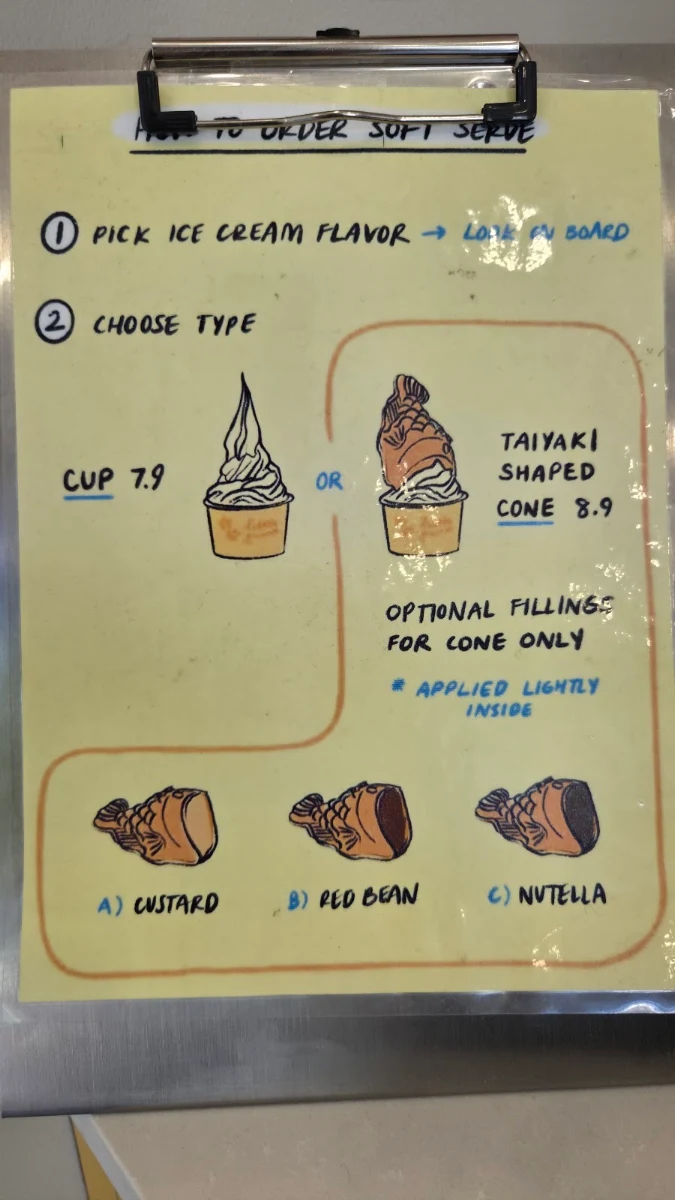 HOW TO ORDER SOFT SERVE
1 PICK ICE CREAM FLAVOR → LOOK ON BOARD
2 CHOOSE TYPE
CUP 7.9
OR
TAIYAKI
SHAPED
CONE 8.9
OPTIONAL FILLINGS
FOR CONE ONLY
* APPLIED LIGHTLY
INSIDE
A) CUSTARD
B) RED BEAN
C) NUTELLA